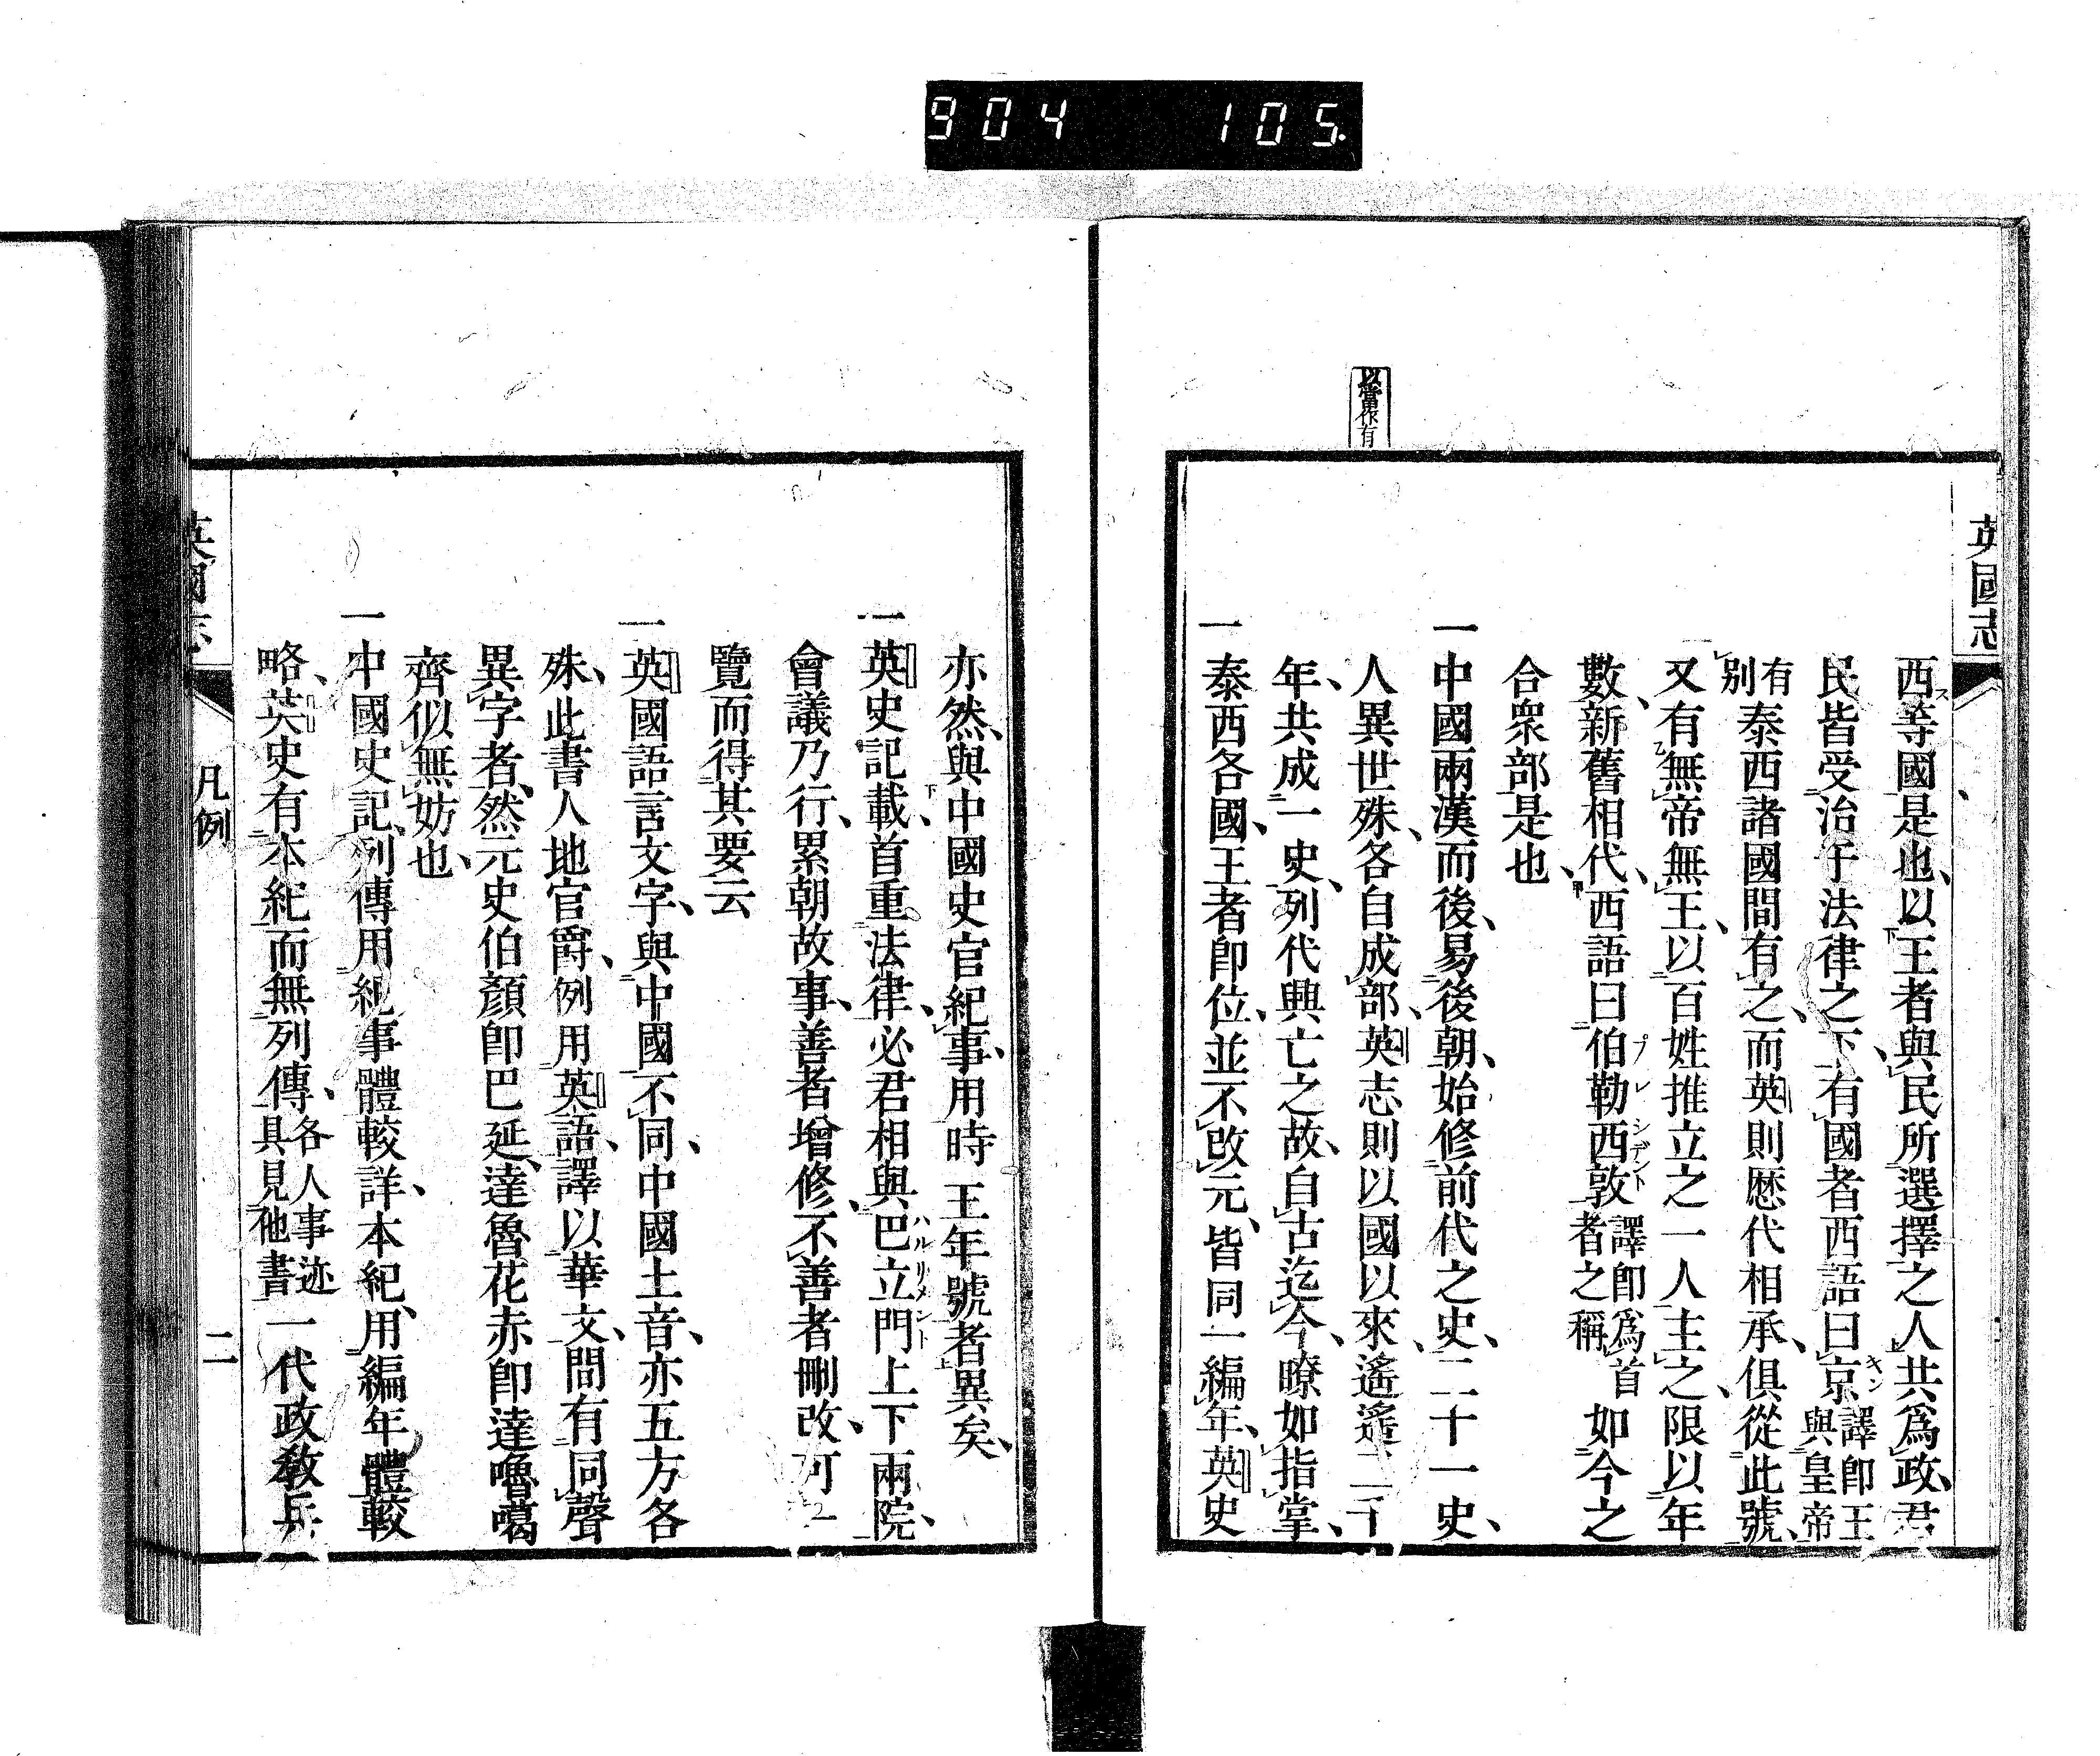 904 105.
以當作有
英國志
西等國是也、以王者與民所選擇之人共爲政、君
民皆受治于法律之下、有國者西語曰京譯卽王與皇帝
有別泰西諸國間有之、而英則歷代相承、俱從此號、
又有無帝無王、以百姓推立之一人主之、限以年
數、新舊相代、西語曰伯勒西敦譯卽爲首者之稱如今之
合衆部是也、
一中國兩漢而後、易後朝、始修前代之史、二十一史、
人異世殊、各自成部、英志則以國以來、遙遙二千
年、共成一史、列代興亡之故、自古迄今、瞭如指掌、
一泰西各國、王者卽位、並不改元、皆同一編年、英史
亦然、與中國史官紀事、用時王年號者異矣、
一英史記載、首重法律、必君相與巴立門上下兩院、
會議乃行、累朝故事、善者增修、不善者刪改、可一
覽而得其要云
一英國語言文字、與中國不同、中國土音、亦五方各
殊、此書人地官爵、例用英語、譯以華文、間有同聲
異字者、然元史伯顏卽巴延、達魯花赤卽達嚕噶
齊、似無妨也、
一中國史記、列傳用紀事體較詳、本紀、用編年體較
略、英史有本紀而無列傳、各人事迹具見他書一代政教兵
英國志
凡例
二